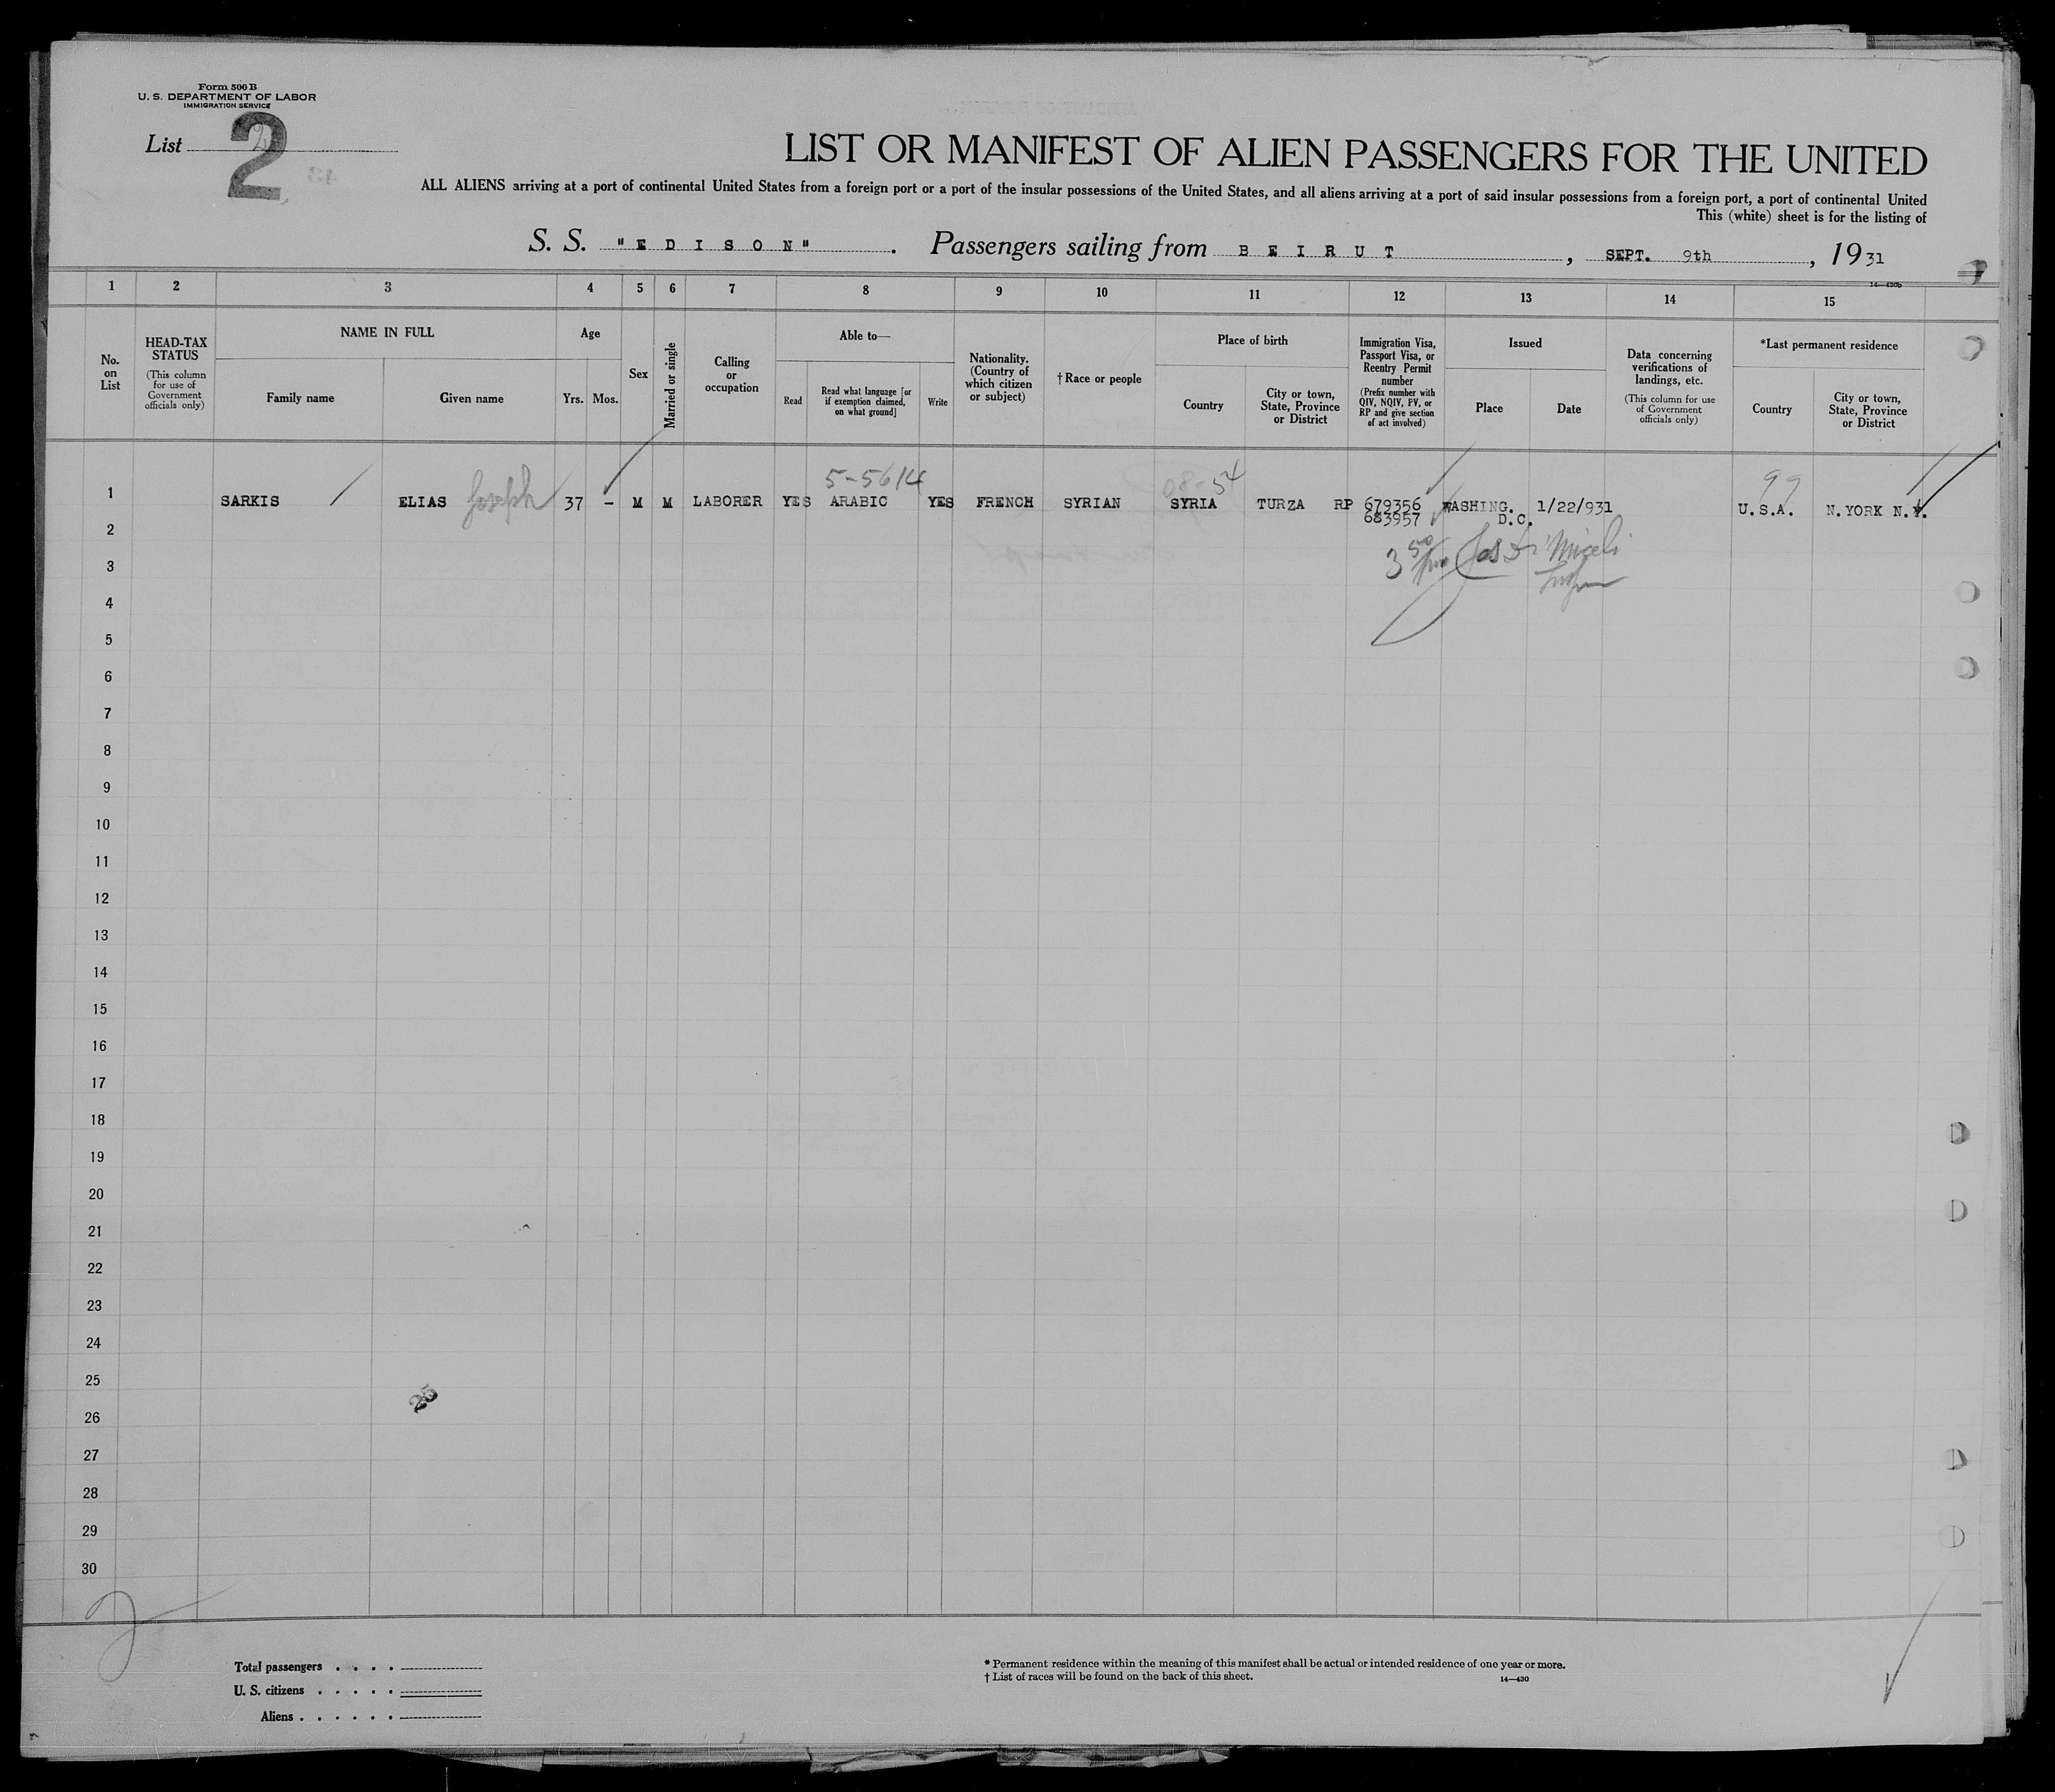 Form 500 B
U. S. DEPARTMENT OF LABOR
IMMIGRATION SERVICE
List 2
2
LIST OR MANIFEST OF ALIEN PASSENGERS FOR THE UNITED
ALL ALIENS arriving at a port of continental United States from a foreign port or a port of the insular possessions of the United States, and all aliens arriving at a port of said insular possessions from a foreign port, a port of continental United
This (white) sheet is for the listing of
S. S. "EDISON" . Passengers sailing from BEIRUT , SEPT. 9th , 1931
14—430b
1 2 3 4 5 6 7 8 9 10 11 12 13 14 15
No. on List
HEAD-TAX STATUS
(This column for use of Government officials only)
NAME IN FULL
Family name
Given name
Age
Yrs. Mos.
Sex
Married or single
Calling or occupation
Able to—
Read
Read what language [or if exemption claimed, on what ground]
Write
Nationality. (Country of which citizen or subject)
† Race or people
Place of birth
Country
City or town, State, Province or District
Immigration Visa, Passport Visa, or Reentry Permit number
(Prefix number with QIV, NQIV, PV, or RP and give section of act involved)
Issued
Place
Date
Data concerning verifications of landings, etc.
(This column for use of Government officials only)
*Last permanent residence
Country
City or town, State, Province or District
5-5614 54 99
1 SARKIS ELIAS Joseph 37 - M M LABORER YES ARABIC YES FRENCH SYRIAN SYRIA TURZA RP 679356 WASHING. 1/22/931 U.S.A. N.YORK N.Y.
683957 D.C.
2
3 3 50
4
5
6
7
8
9
10
11
12
13
14
15
16
17
18
19
20
21
22
23
24
25
25
26
27
28
29
30
2
Total passengers . . . .
U. S. citizens . . . . .
Aliens . . . . . .
* Permanent residence within the meaning of this manifest shall be actual or intended residence of one year or more.
† List of races will be found on the back of this sheet.
14—430